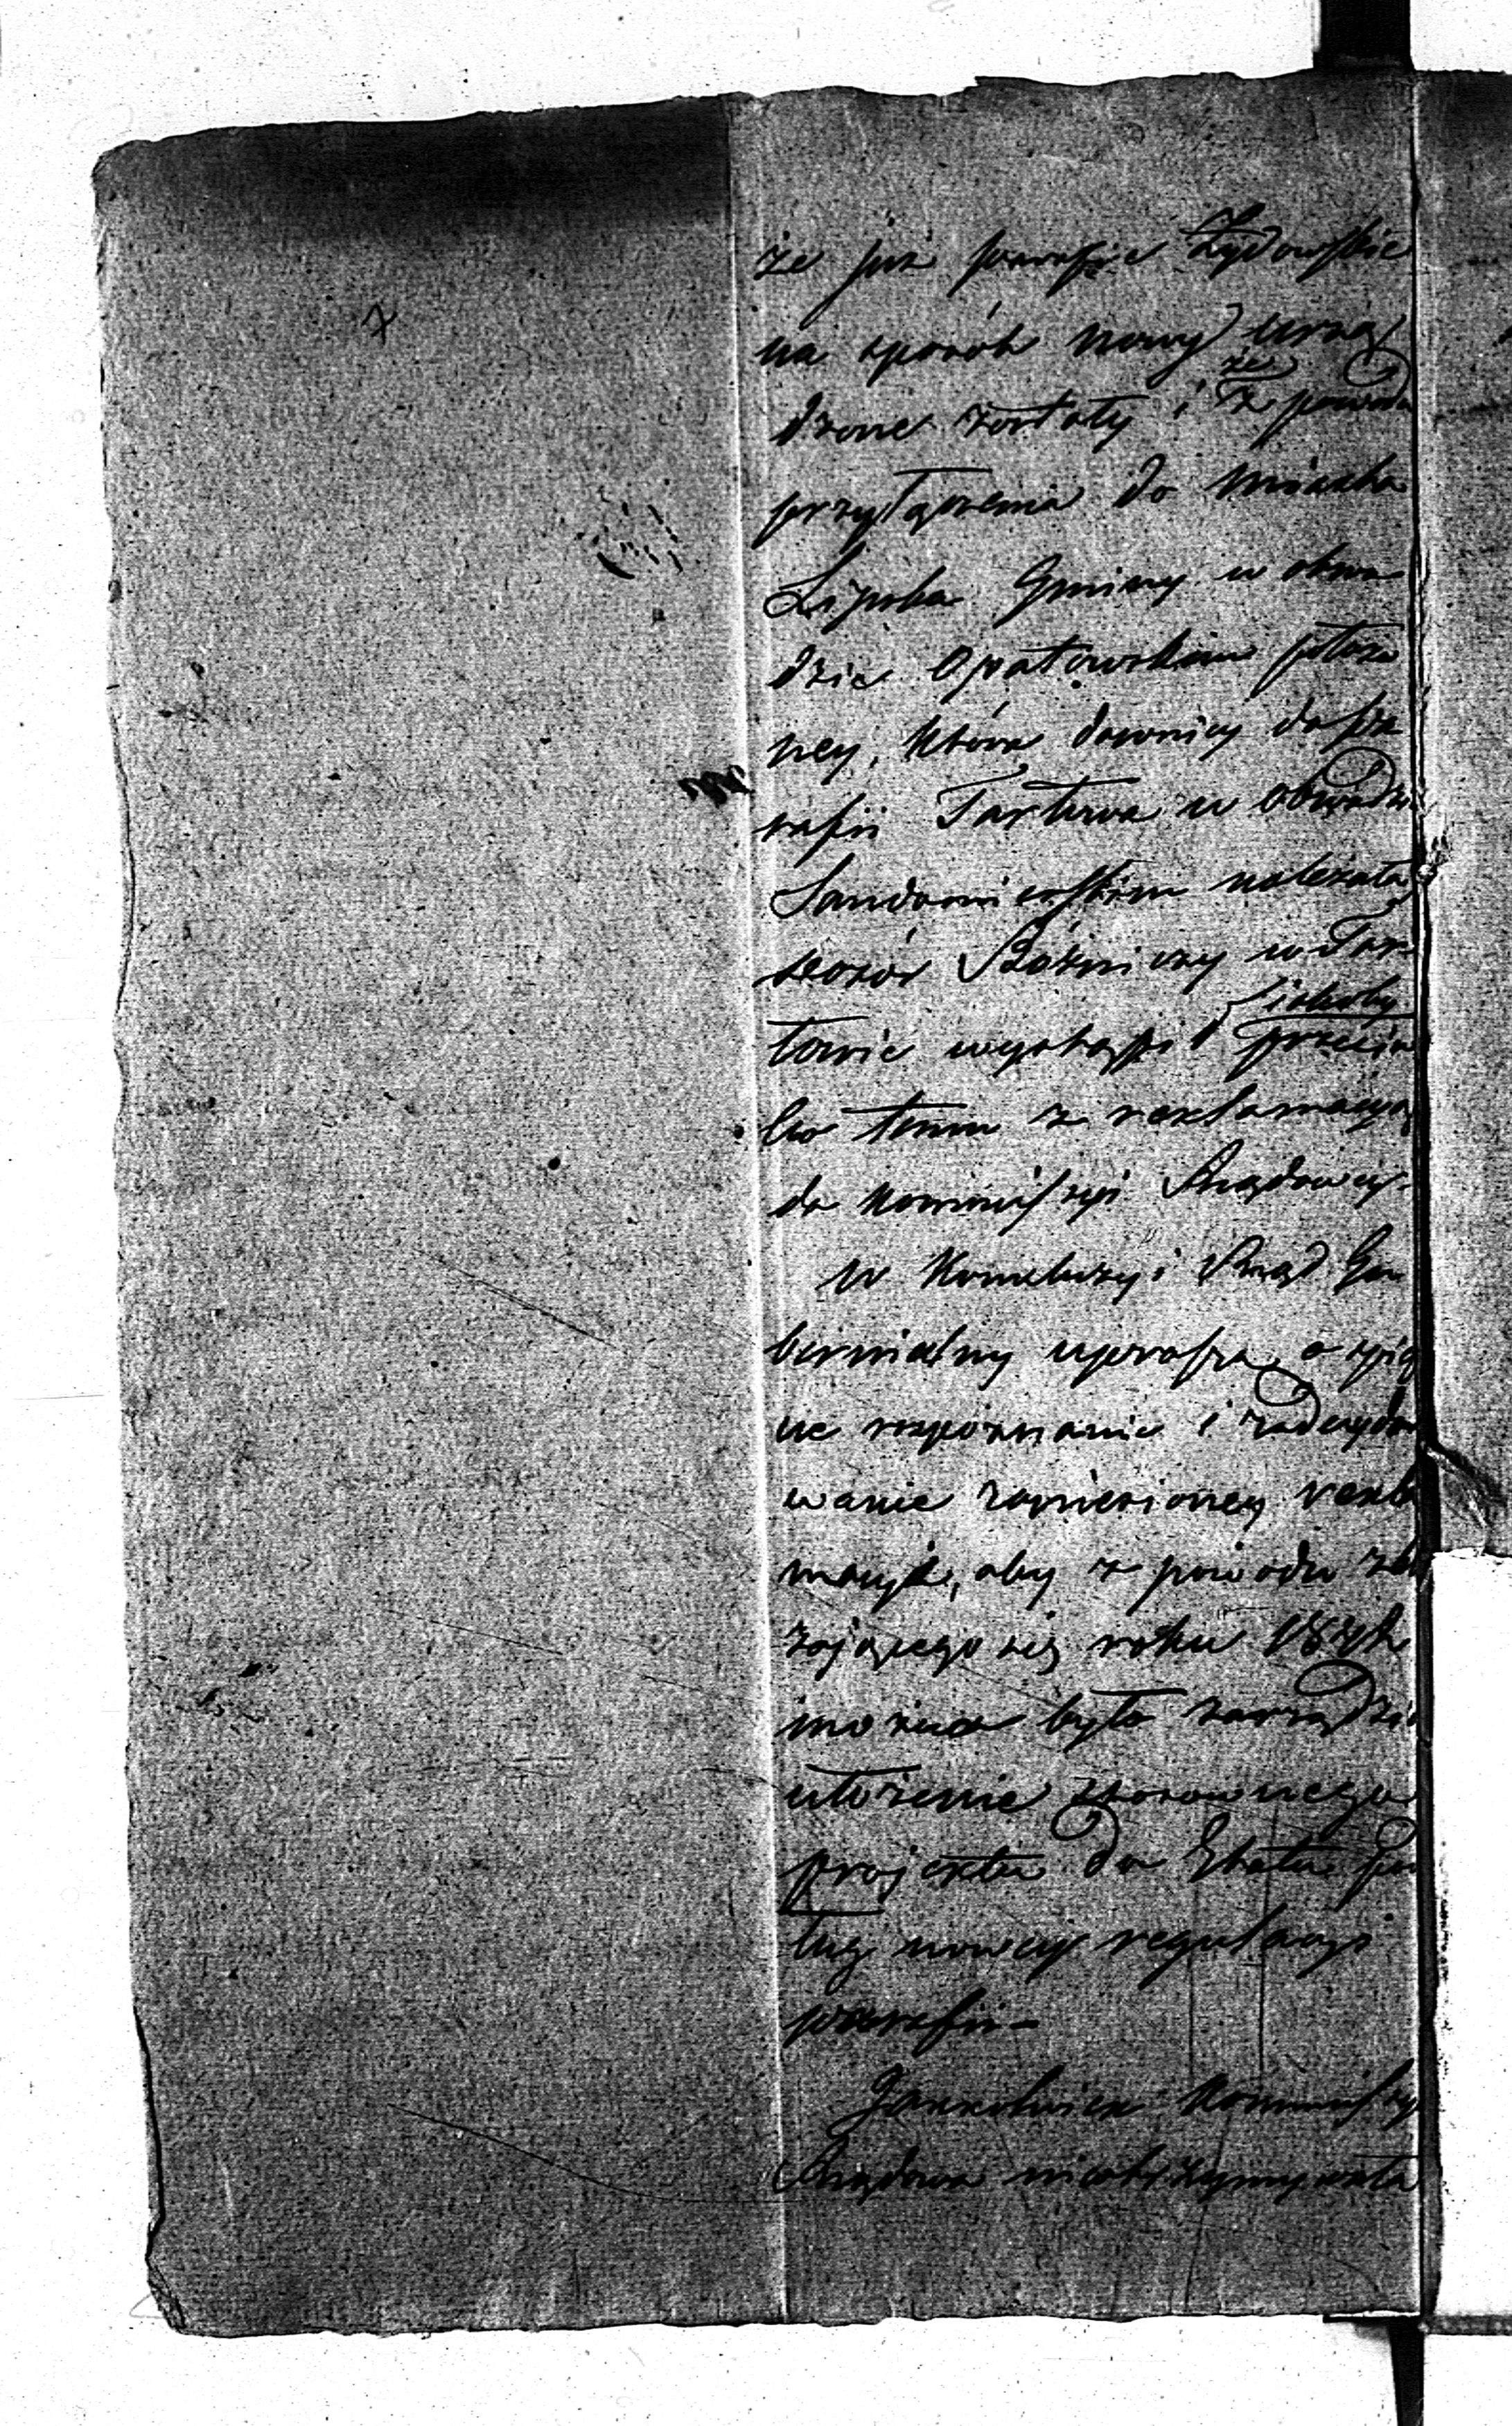 że już parafie Żydowskie
na sposób nowy urzą
dzone zostały i że z powodu
przyłączenia do miasta
Lipska Gminy w obwo
dzie Opatowskim położo
ney, która dawniey do pa
rafii Tarłowa w obwodzie
Sandomierskim należała
dozór Bóżniczy w Tar
łowie wystąpił jakoby przeciw
ko temu z reklamacyą
do Kommissyi Rządowey.
W Konkluzyi Rząd Gu
bernialny uprasza o
ne rozpoznanie i zadecydo
wanie zaniesioney rekla
macyi, aby z powodu zbli
żającego się roku
można było zarządzić
ułożenie stosownego
projektu do Etatu po
dług nowey regulacyi
parafii.
Jakkolwiek Kommissya
Rządowa nieotrzymywała